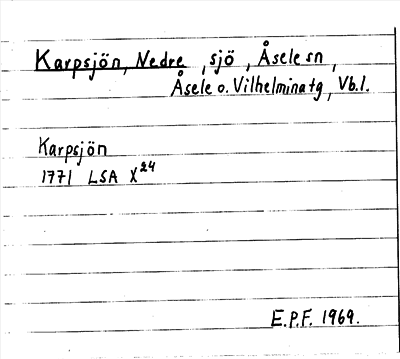 Karpsjön, Nedre, sjö, Åsele sn,
Åsele o. Vilhelmina tg, Vb.l.
Karpsjön
1771 LSA X24
E.P.F. 1969.